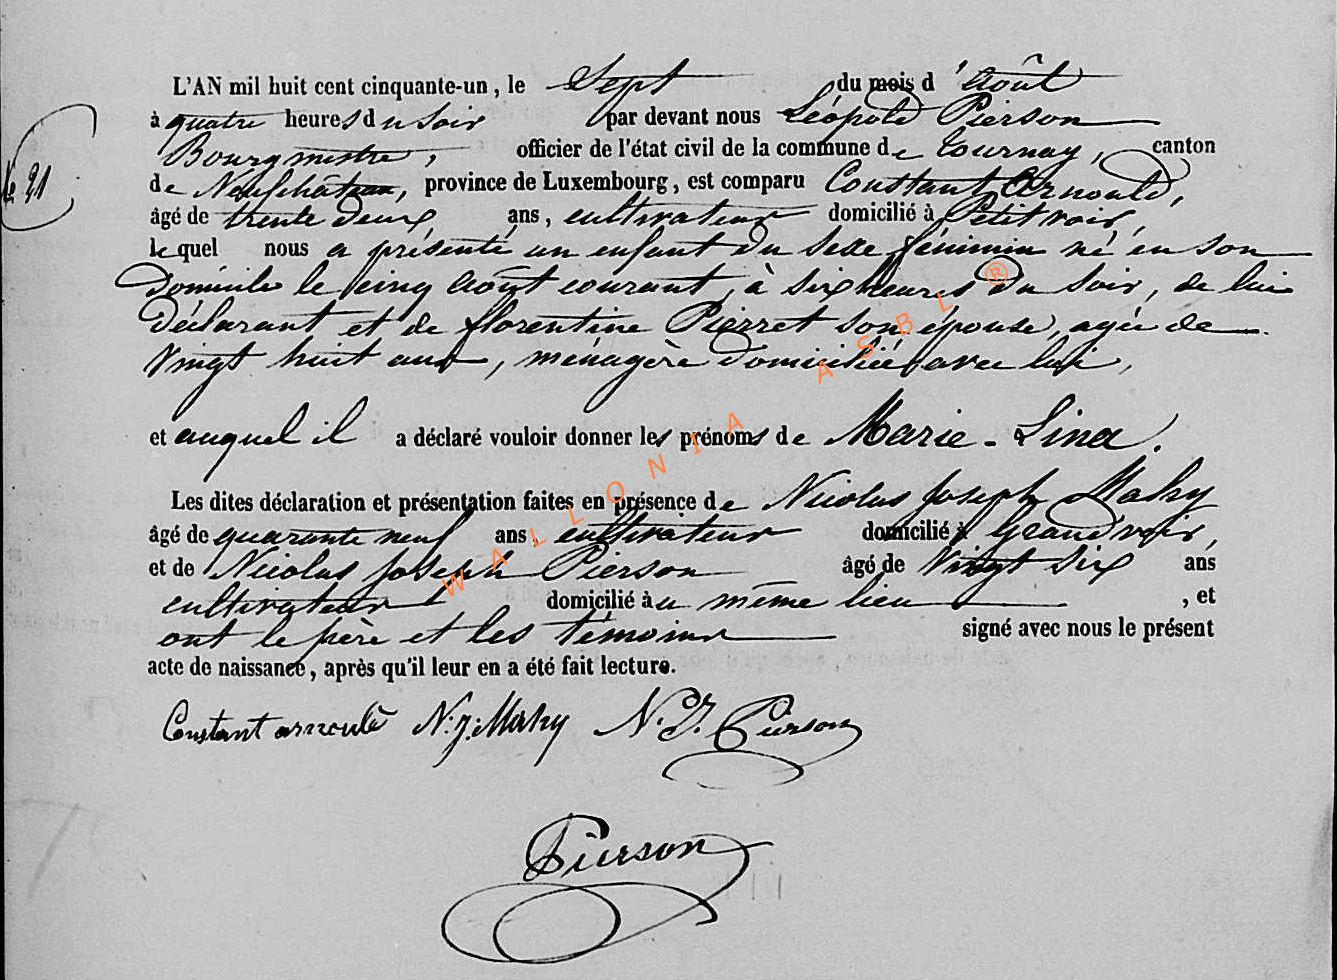 L'AN mil huit cent cinquante-un, le Sept du mois d'Août
à quatre heures du soir par devant nous Léopold Pierson
Bourgmestre, officier de l'état civil de la commune de Tournay, canton
N° 21
de Neufchâteau, province de Luxembourg, est comparu Constant Arnould,
âgé de trente deux ans, cultivateur domicilié à Petitvoir,
lequel nous a présenté un enfant du sexe féminin né en son
domicile le cinq Août courant, à six heures du soir, de lui
déclarant et de florentine Pierret son épouse, agée de
Vingt huit ans, ménagère domiciliée avec lui,
et auquel il a déclaré vouloir donner les prénoms de Marie-Lina.
Les dites déclaration et présentation faites en présence de Nicolas Joseph Mahy
âgé de quarante neuf ans, cultivateur domicilié à Grandvoir,
et de Nicolas Joseph Pierson âgé de Vingt six ans
cultivateur domicilié au même lieu, et
ont le père et les témoins signé avec nous le présent
acte de naissance, après qu'il leur en a été fait lecture.
Constant arnould N. J. Mahy N. J. Pierson
Pierson
WALLONIA ASBL ®